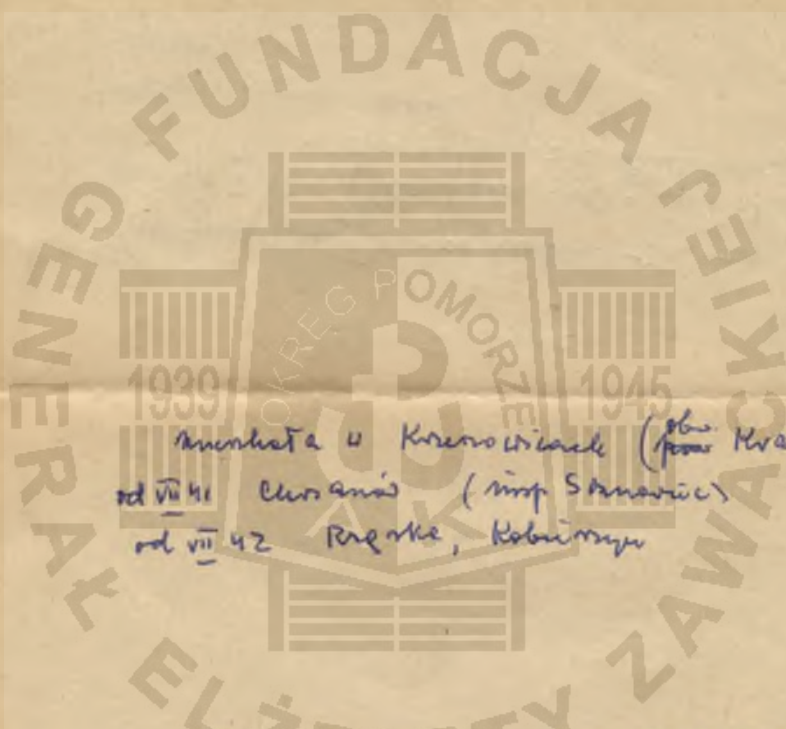 FUNDACJA
GENERAŁ ELŻBIETY ZAWACKIEJ
OKRĘG POMORZE
1939 1945
AK
mieszkała w Krzeszowicach (obw. Kra
od VII 41 Chrzanów (insp Sosnowiec)
od VII 42 Rząska, Kobierzyn